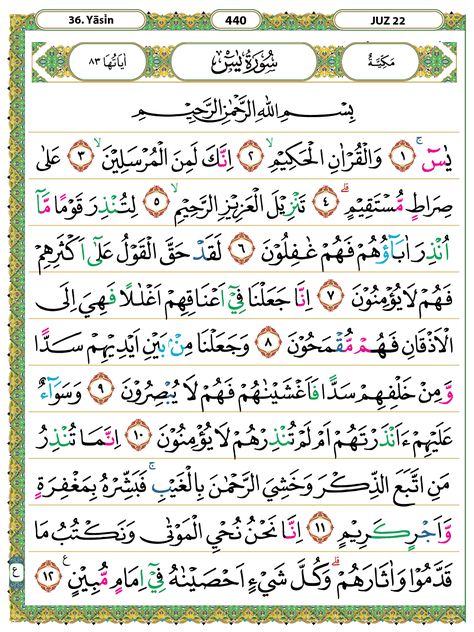 36. Yāsin 440 JUZ 22
مكيّة سُوْرَةُ يٰسۤ اٰيَاتُهَا ٨٣
بِسْمِ اللّٰهِ الرَّحْمٰنِ الرَّحِيْمِ
يٰسۤ ۚ ١ وَالْقُرْاٰنِ الْحَكِيْمِۙ ٢ اِنَّكَ لَمِنَ الْمُرْسَلِيْنَۙ ٣ عَلٰى
صِرَاطٍ مُّسْتَقِيْمٍۗ ٤ تَنْزِيْلَ الْعَزِيْزِ الرَّحِيْمِۙ ٥ لِتُنْذِرَ قَوْمًا مَّآ
اُنْذِرَ اٰبَاۤؤُهُمْ فَهُمْ غٰفِلُوْنَ ٦ لَقَدْ حَقَّ الْقَوْلُ عَلٰٓى اَكْثَرِهِمْ
فَهُمْ لَا يُؤْمِنُوْنَ ٧ اِنَّا جَعَلْنَا فِيْٓ اَعْنَاقِهِمْ اَغْلٰلًا فَهِيَ اِلَى
الْاَذْقَانِ فَهُمْ مُّقْمَحُوْنَ ٨ وَجَعَلْنَا مِنْۢ بَيْنِ اَيْدِيْهِمْ سَدًّا
وَّمِنْ خَلْفِهِمْ سَدًّا فَاَغْشَيْنٰهُمْ فَهُمْ لَا يُبْصِرُوْنَ ٩ وَسَوَاۤءٌ
عَلَيْهِمْ ءَاَنْذَرْتَهُمْ اَمْ لَمْ تُنْذِرْهُمْ لَا يُؤْمِنُوْنَ ١٠ اِنَّمَا تُنْذِرُ
مَنِ اتَّبَعَ الذِّكْرَ وَخَشِيَ الرَّحْمٰنَ بِالْغَيْبِۚ فَبَشِّرْهُ بِمَغْفِرَةٍ
وَّاَجْرٍ كَرِيْمٍ ١١ اِنَّا نَحْنُ نُحْيِ الْمَوْتٰى وَنَكْتُبُ مَا
قَدَّمُوْا وَاٰثَارَهُمْۗ وَكُلَّ شَيْءٍ اَحْصَيْنٰهُ فِيْٓ اِمَامٍ مُّبِيْنٍ ࣖ ١٢
ع